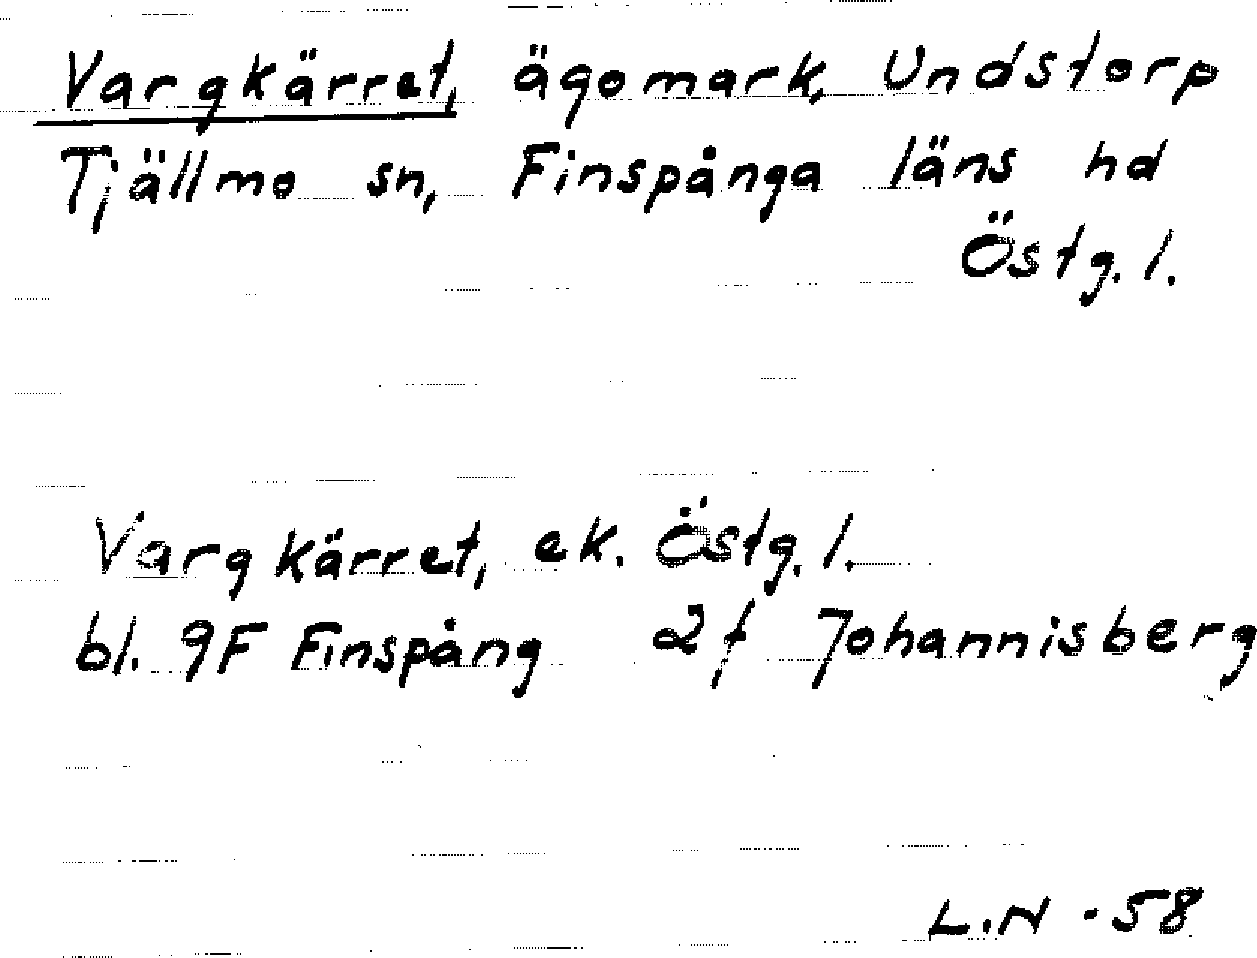 Vargkärret, ägomark, Undstorp
Tjällmo sn, Finspånga läns hd
Östg. l.
Vargkärret, ek. Östg. l.
bl. 9F Finspång 2f Johannisberg
L.N -58